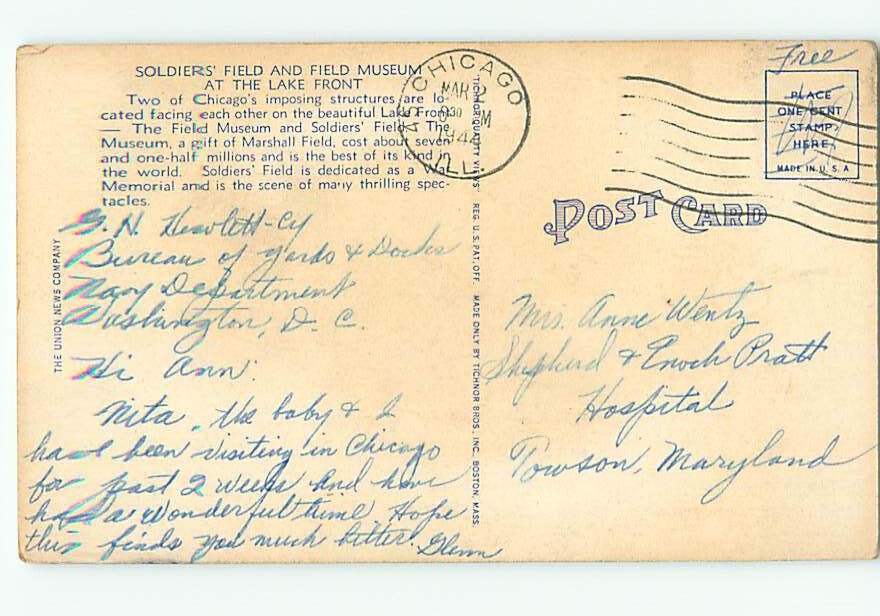 SOLDIERS' FIELD AND FIELD MUSEUM
AT THE LAKE FRONT
Two of Chicago's imposing structures are lo-
cated facing each other on the beautiful Lake Front
— The Field Museum and Soldiers' Field. The
Museum, a gift of Marshall Field, cost about seven
and one-half millions and is the best of its kind in
the world. Soldiers' Field is dedicated as a War
Memorial and is the scene of many thrilling spec-
tacles.
G. N. Hewlett-Cy
Bureau of yards & Docks
Navy Department
Washington, D. C.
Hi Ann:
Nita, the baby & I
have been visiting in Chicago
for past 2 weeks and have
had a wonderful time. Hope
this finds you much better. Glenn
THE UNION NEWS COMPANY
TICHNOR QUALITY VIEWS REG. U.S. PAT. OFF. MADE ONLY BY TICHNOR BROS., INC. BOSTON, MASS.
CHICAGO
MAR 2
9 30 PM
ILL.
Free
PLACE
ONE CENT
STAMP
HERE
MADE IN U.S.A
POST CARD
Mrs. Anne Wentz
Shepherd & Enoch Pratt
Hospital
Towson, Maryland